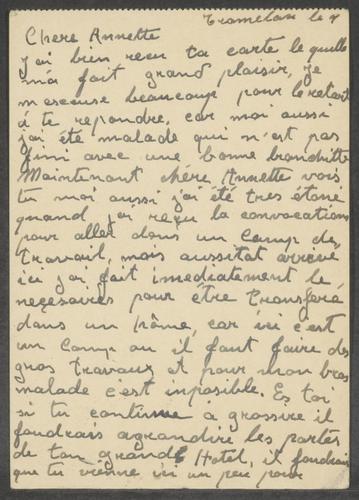 Tramelan le 7
Chere Annette
j'ai bien recu ta carte le quelle
m'a fait grand plaisir, je
m'escuse beaucoup pour le retart
é te repondre, car moi aussi
j'ai été malade qui n'est pas
fini avec une bonne branchitte
Maintenant chére Annette vois
tu moi aussi j'ai été tres étoné
quand j'ai reçu la convocations
pour aller dans un Camp de
travail, mais aussitat arrevé
ici j'ai fait imediatement le
neçesaires pour être transferé
dans un hôme, car ici c'est
un Camp ou il faut faire des
gros travaux et pour mon bras
malade c'est imposible. Es toi
si tu continue a grossire il
faudrais agrandire les portes
de ton grande Hotel, it faudrais
que tu vienne ici un peu pour